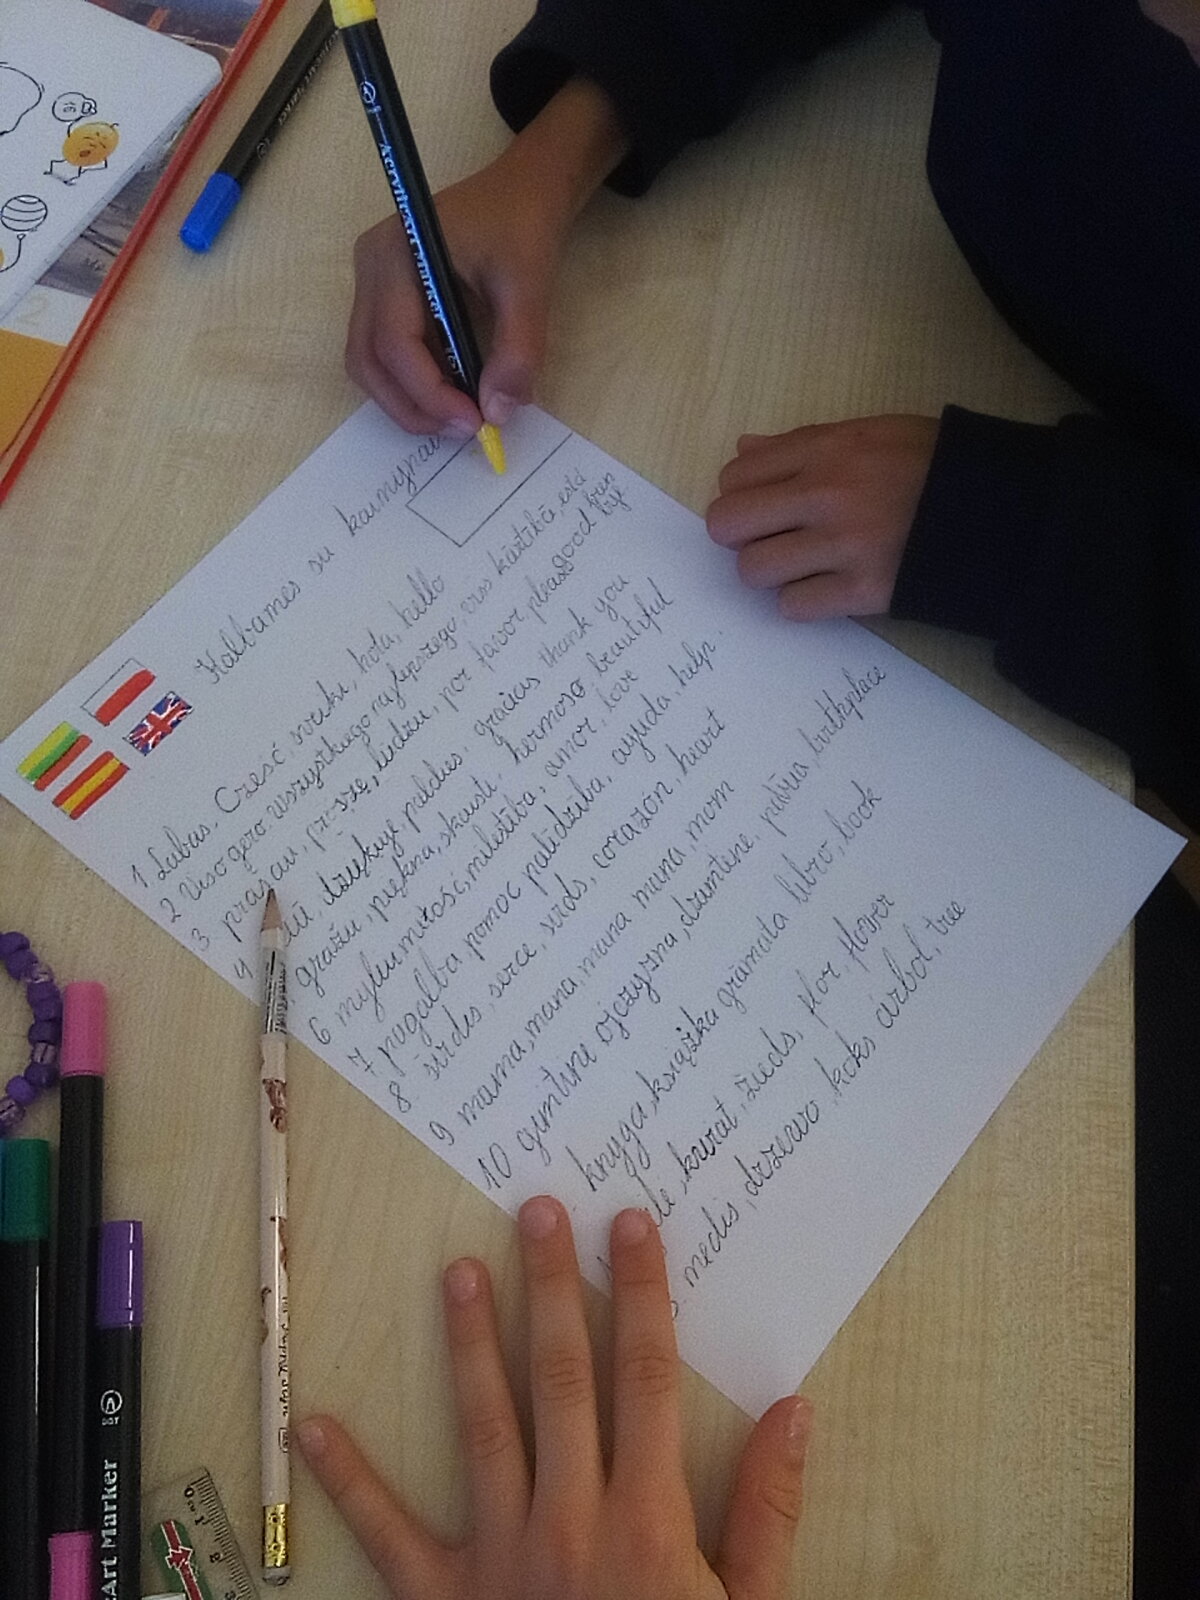 Kalbames su kaimynais
1 Labas, Cześć, sveiki, hola, hello
2 Viso gero. Wszystkiego najlepszego, viss kārtībā, está bien good by
3. prašau, proszę, lūdzu, por favor, please
4 dziękuję, paldies, gracias thank you
gražu, piękna, skaisti, hermoso, beautiful
6 myliu, miłość, milestība, amor, love
7 pagalba, pomoc palidzība, ayuda, help.
8 širdis, serce, sirds, corazón, heart
9 mama, mama, mana mana, mom
10 gimtinė ojczyzna, dzimtene, patria, birthplace
knyga, książka gramata libro, book
kwiat, žieds, flor, flower
medis, drzewo, koks árbol, tree
AcrylicArt Marker
Art Marker
DOT
0 1 2 3